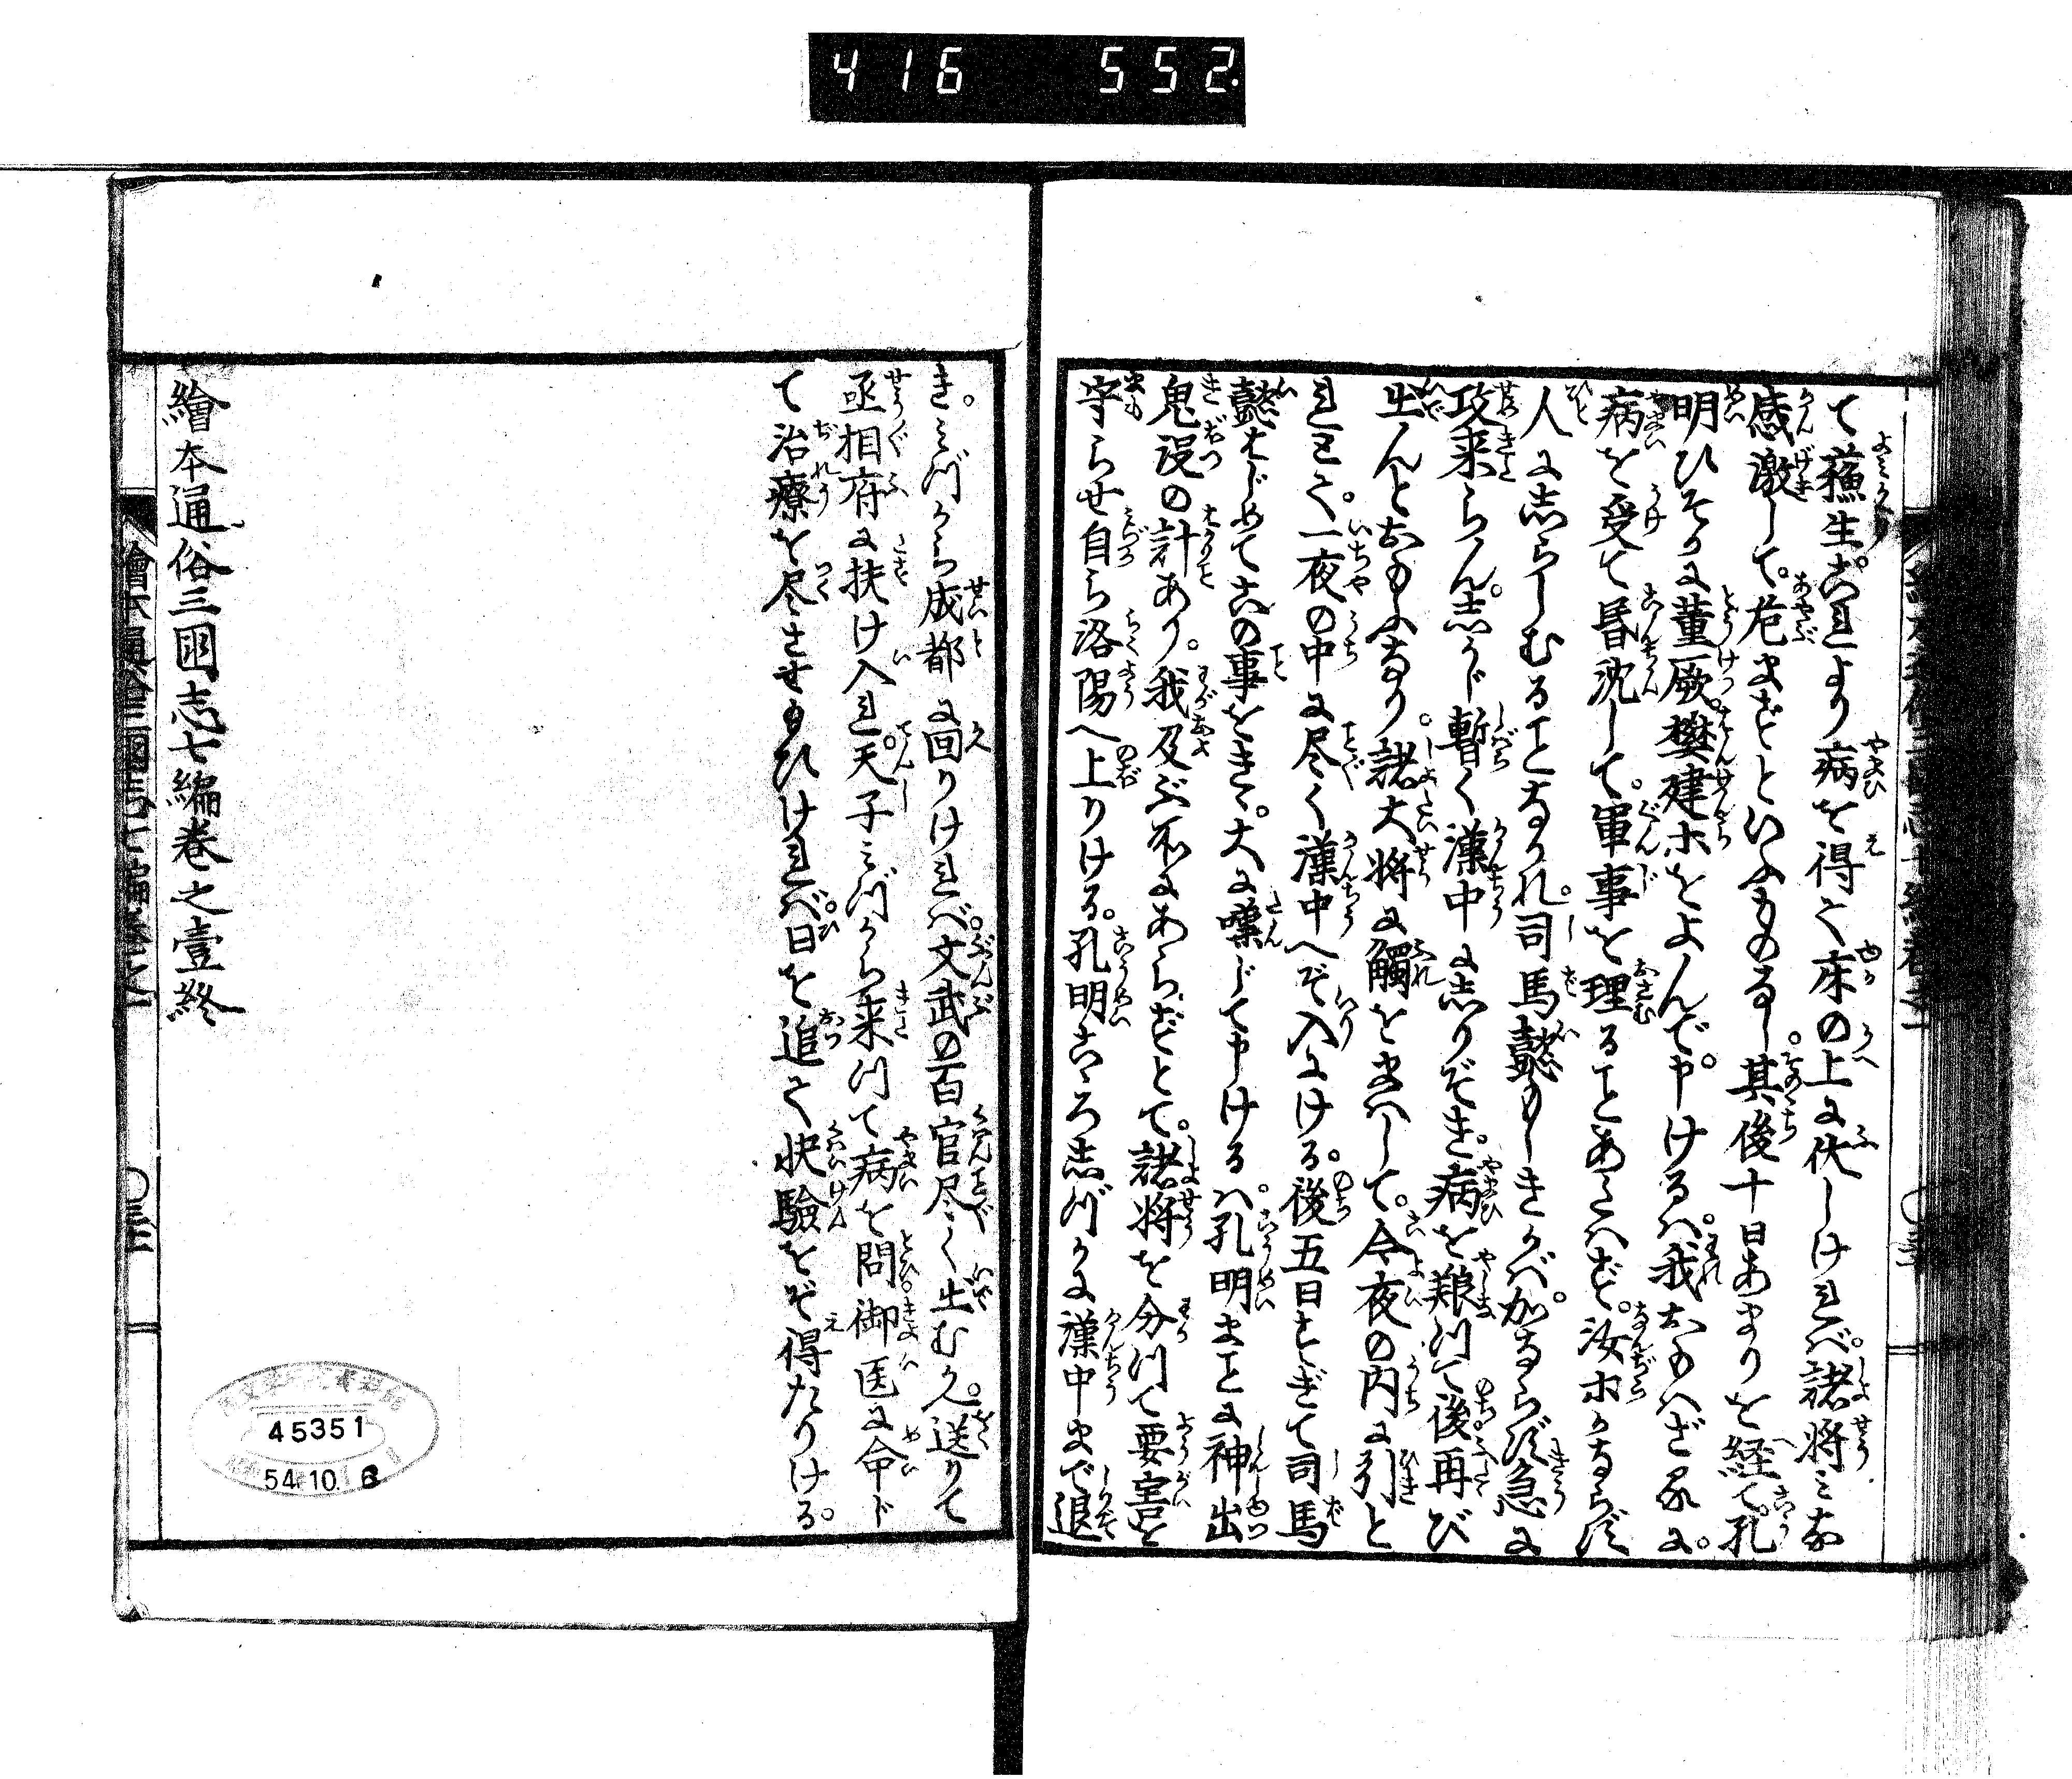 416 552
て蘓生これより病を得て床の上に伏しければ。諸将みな
感激して。危きまどといふものなし。其後十日あまりを経て。孔
明ひそかに董厥。樊建ホをよんで。申けるハ。我おもハざるに。
病を受て昏沈して。軍事を理ることあたハず。汝ホかならず
人に志らしむることなかれ。司馬懿もしきかバ。かならず急に
攻来らん。志かじ暫く漢中に志りぞき。病を養つて後再び
出んとおもふなり。諸大将に觸をまハして。今夜の内に引と
れとて。一夜の中に尽く漢中へぞ入にける。後五日すぎて司馬
懿はじめてこの事をきゝ。大に嘆じて申けるハ。孔明まことに神出
鬼没の計あり。我及ぶ所にあらずとて。諸将を分つて要害を
守らせ自ら洛陽へ上りける。孔明こゝろ志づかに漢中まで退
き。みづから成都に回りければ。文武の百官尽く出むかへ。送りて
丞相府に扶け入れ。天子みづから来つて病を問。御医に命じ
て治療を尽させ玉ひければ。日を追て快験をぞ得たりける。
繪本通俗三國志七編巻之壹終
45351
54.10.6